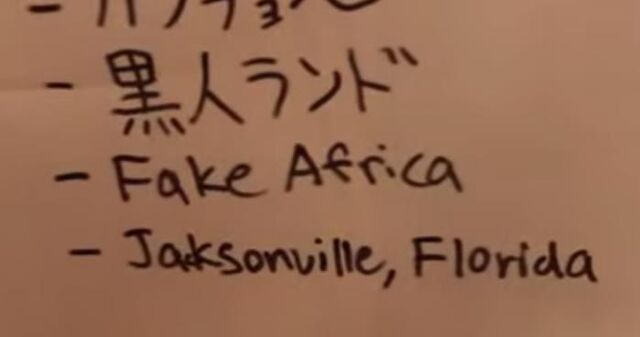 - 黒人ランド
- Fake Africa
- Jaksonville, Florida